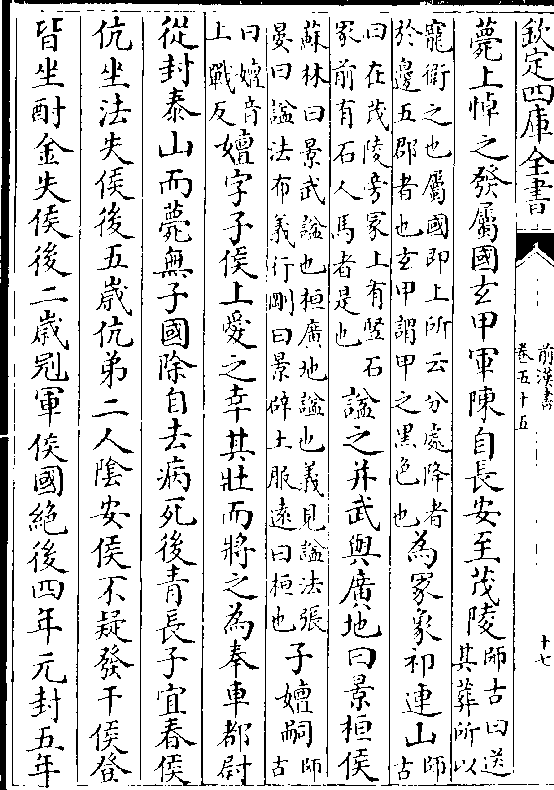 欽定四庫全書
前漢書
卷五十五
十七
薨上悼之發屬國玄甲軍陳自長安至茂陵師古曰送
其葬所以
寵衛之也屬國即上所云分處降者
於邊五郡者也玄甲謂甲之黑色也為冢象祁連山師
古
曰在茂陵旁冢上有豎石
冢前有石人馬者是也諡之并武與廣地曰景桓侯
蘇林曰景武諡也桓廣地諡也義見諡法張
晏曰諡法布義行剛曰景辟土服遠曰桓也子嬗嗣師
古
曰嬗音
上戰反嬗字子侯上愛之幸其壯而將之為奉車都尉
從封泰山而薨無子國除自去病死後青長子宜春侯
伉坐法失侯後五歲伉弟二人陰安侯不疑發干侯登
皆坐酎金失侯後二歲冠軍侯國絕後四年元封五年